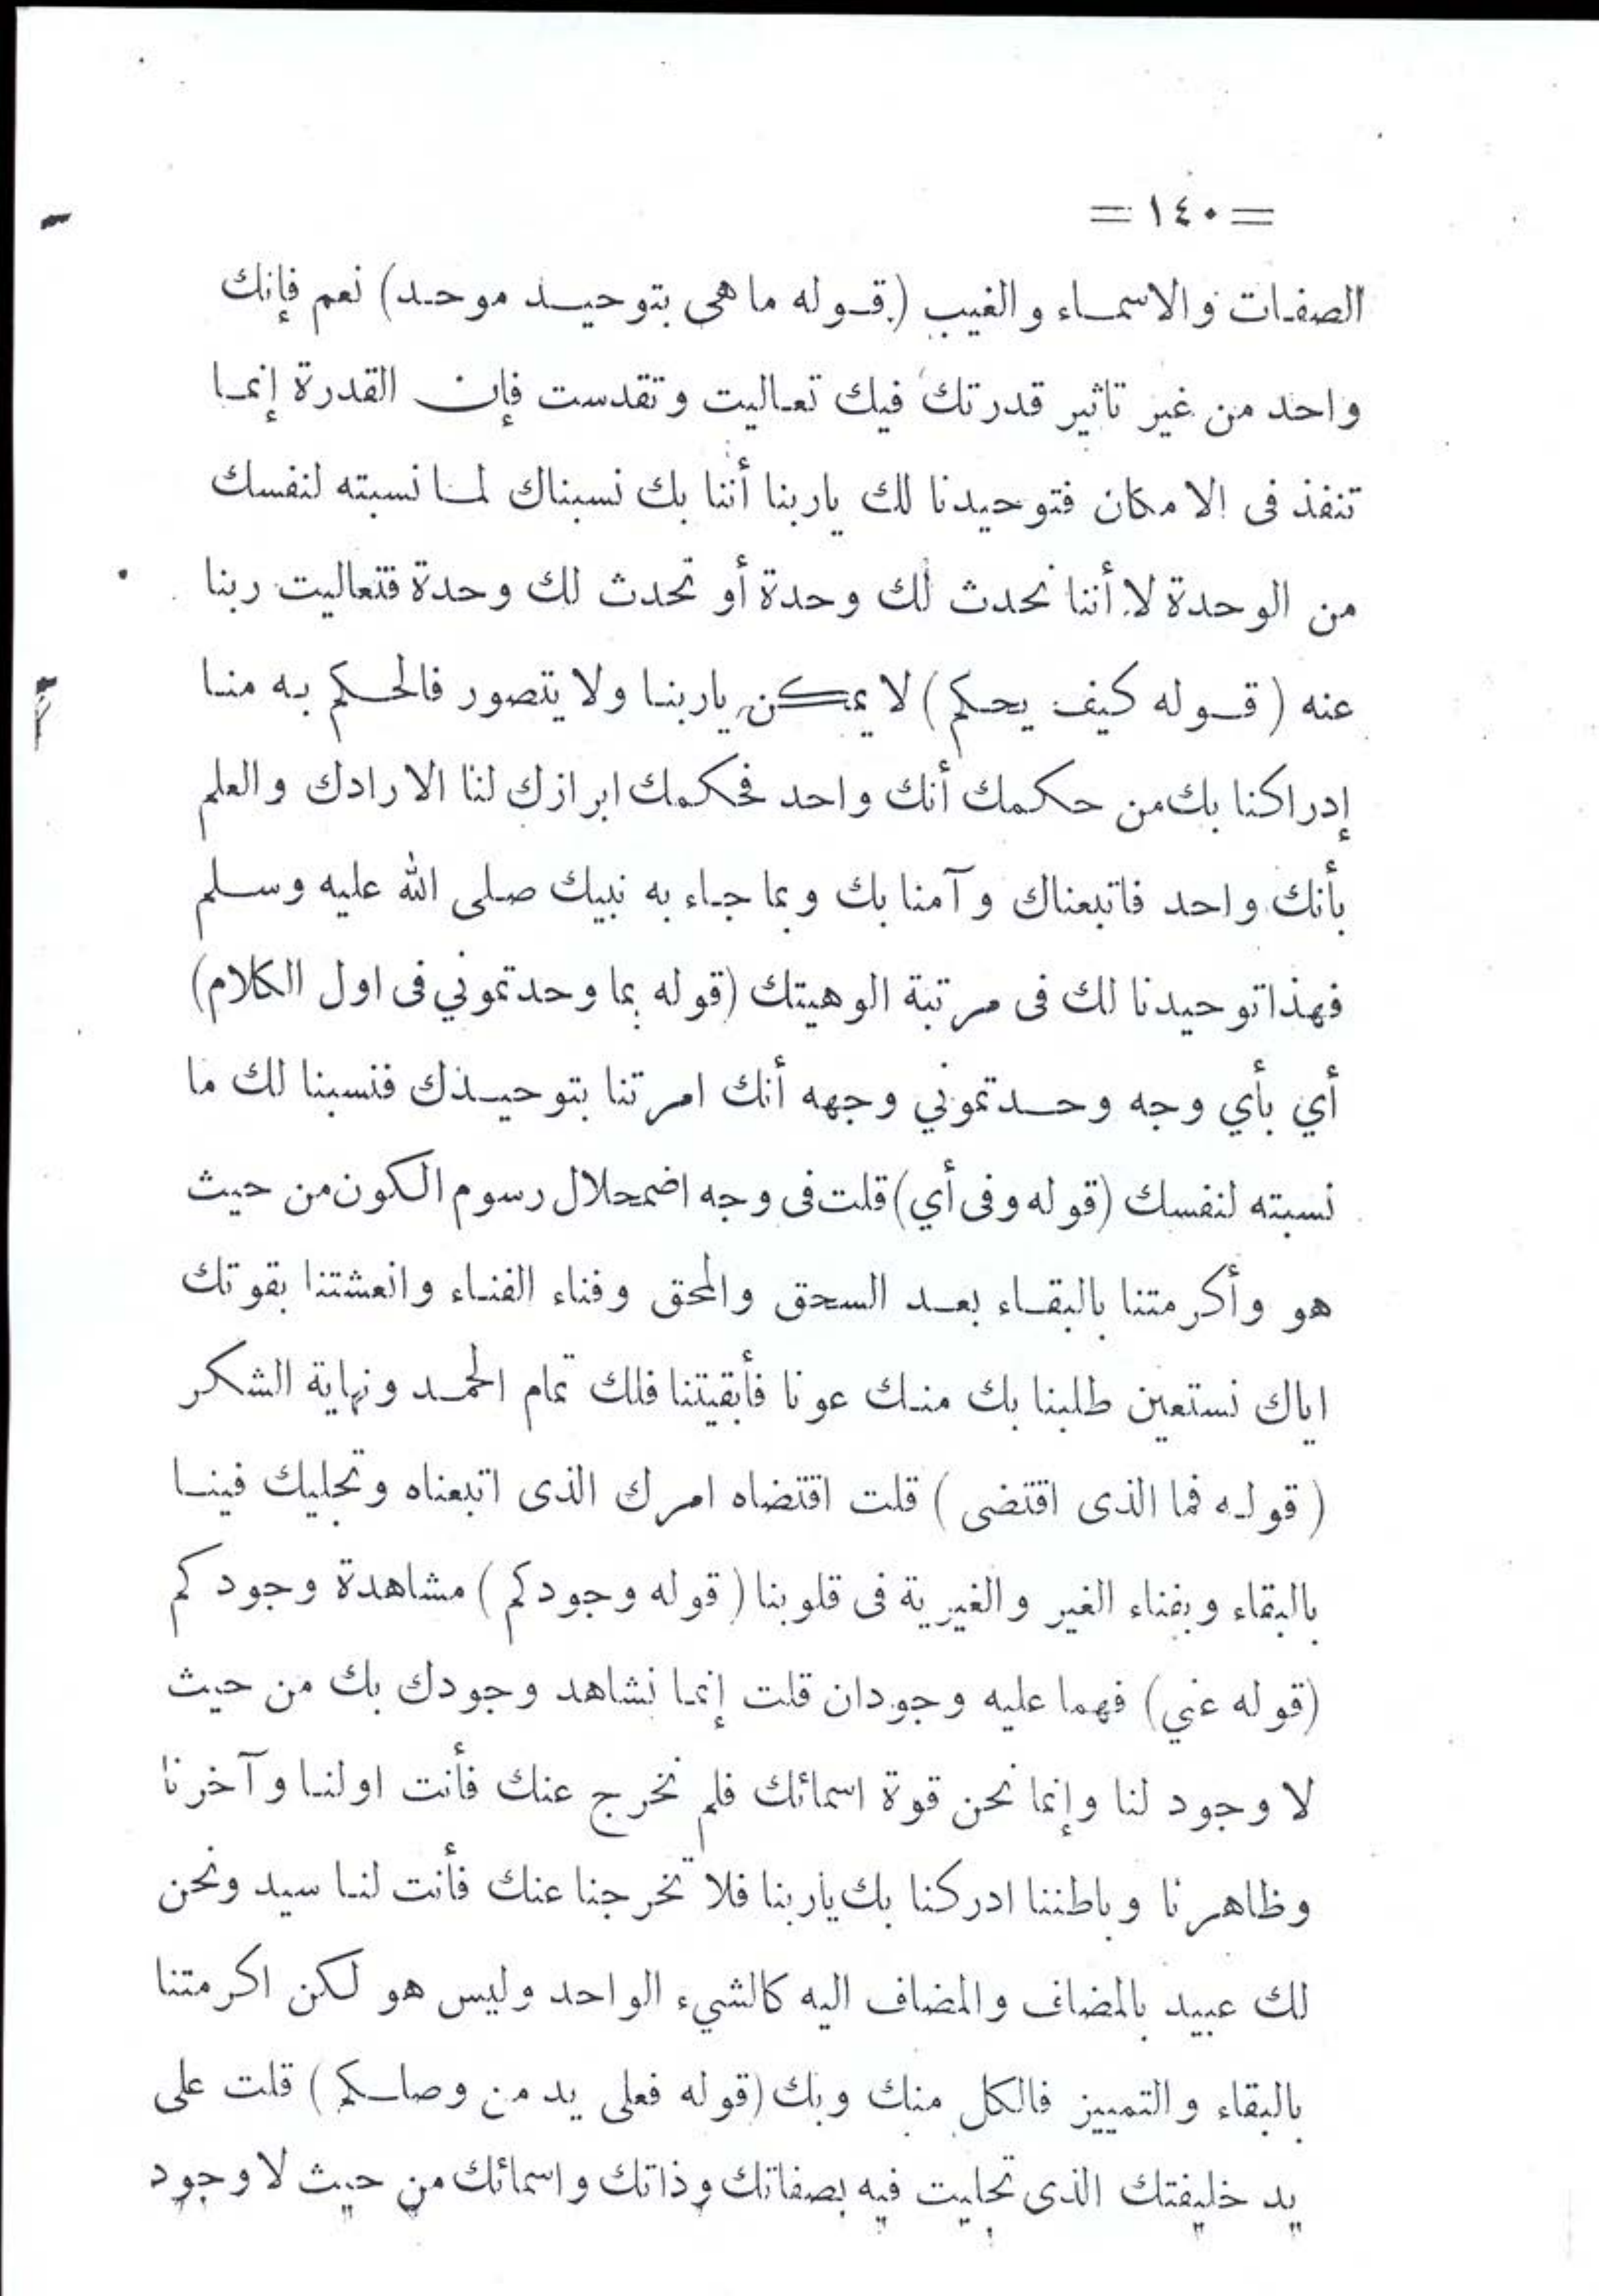 = ١٤٠ =
الصفات والاسماء والغيب (قوله ما هى بتوحيد موحد) نعم فإنك
واحد من غير تاثير قدرتك فيك تعاليت وتقدست فإن القدرة إنما
تنفذ فى الامكان فتوحيدنا لك ياربنا أننا بك نسبناك لما نسبته لنفسك
من الوحدة لا أننا نحدث لك وحدة أو تحدث لك وحدة فتعاليت ربنا
عنه (قوله كيف يحكم) لا يمكن ياربنا ولا يتصور فالحكم به منا
إدراكنا بك من حكمك أنك واحد فحكمك ابرازك لنا الارادك والعلم
بأنك واحد فاتبعناك وآمنا بك وبما جاء به نبيك صلى الله عليه وسلم
فهذا توحيدنا لك فى مرتبة الوهيتك (قوله بما وحدتموني فى اول الكلام)
أي بأي وجه وحدتموني وجهه أنك امرتنا بتوحيدك فنسبنا لك ما
نسبته لنفسك (قوله وفى أي) قلت فى وجه اضمحلال رسوم الكون من حيث
هو وأكرمتنا بالبقاء بعد السحق والمحق وفناء الفناء وانعشتنا بقوتك
اياك نستعين طلبنا بك منك عونا فأبقيتنا فلك تمام الحمد ونهاية الشكر
(قوله فما الذى اقتضى) قلت اقتضاه امرك الذى اتبعناه وتجليك فينا
بالبقاء وبفناء الغير والغيرية فى قلوبنا (قوله وجودكم) مشاهدة وجودكم
(قوله عني) فهما عليه وجودان قلت إنما نشاهد وجودك بك من حيث
لا وجود لنا وإنما نحن قوة اسمائك فلم نخرج عنك فأنت اولنا وآخرنا
وظاهرنا وباطننا ادركنا بك ياربنا فلا تخرجنا عنك فأنت لنا سيد ونحن
لك عبيد بالمضاف والمضاف اليه كالشيء الواحد وليس هو لكن اكرمتنا
بالبقاء والتمييز فالكل منك وبك (قوله فعلى يد من وصلكم) قلت على
يد خليفتك الذى تجليت فيه بصفاتك وذاتك واسمائك من حيث لا وجود